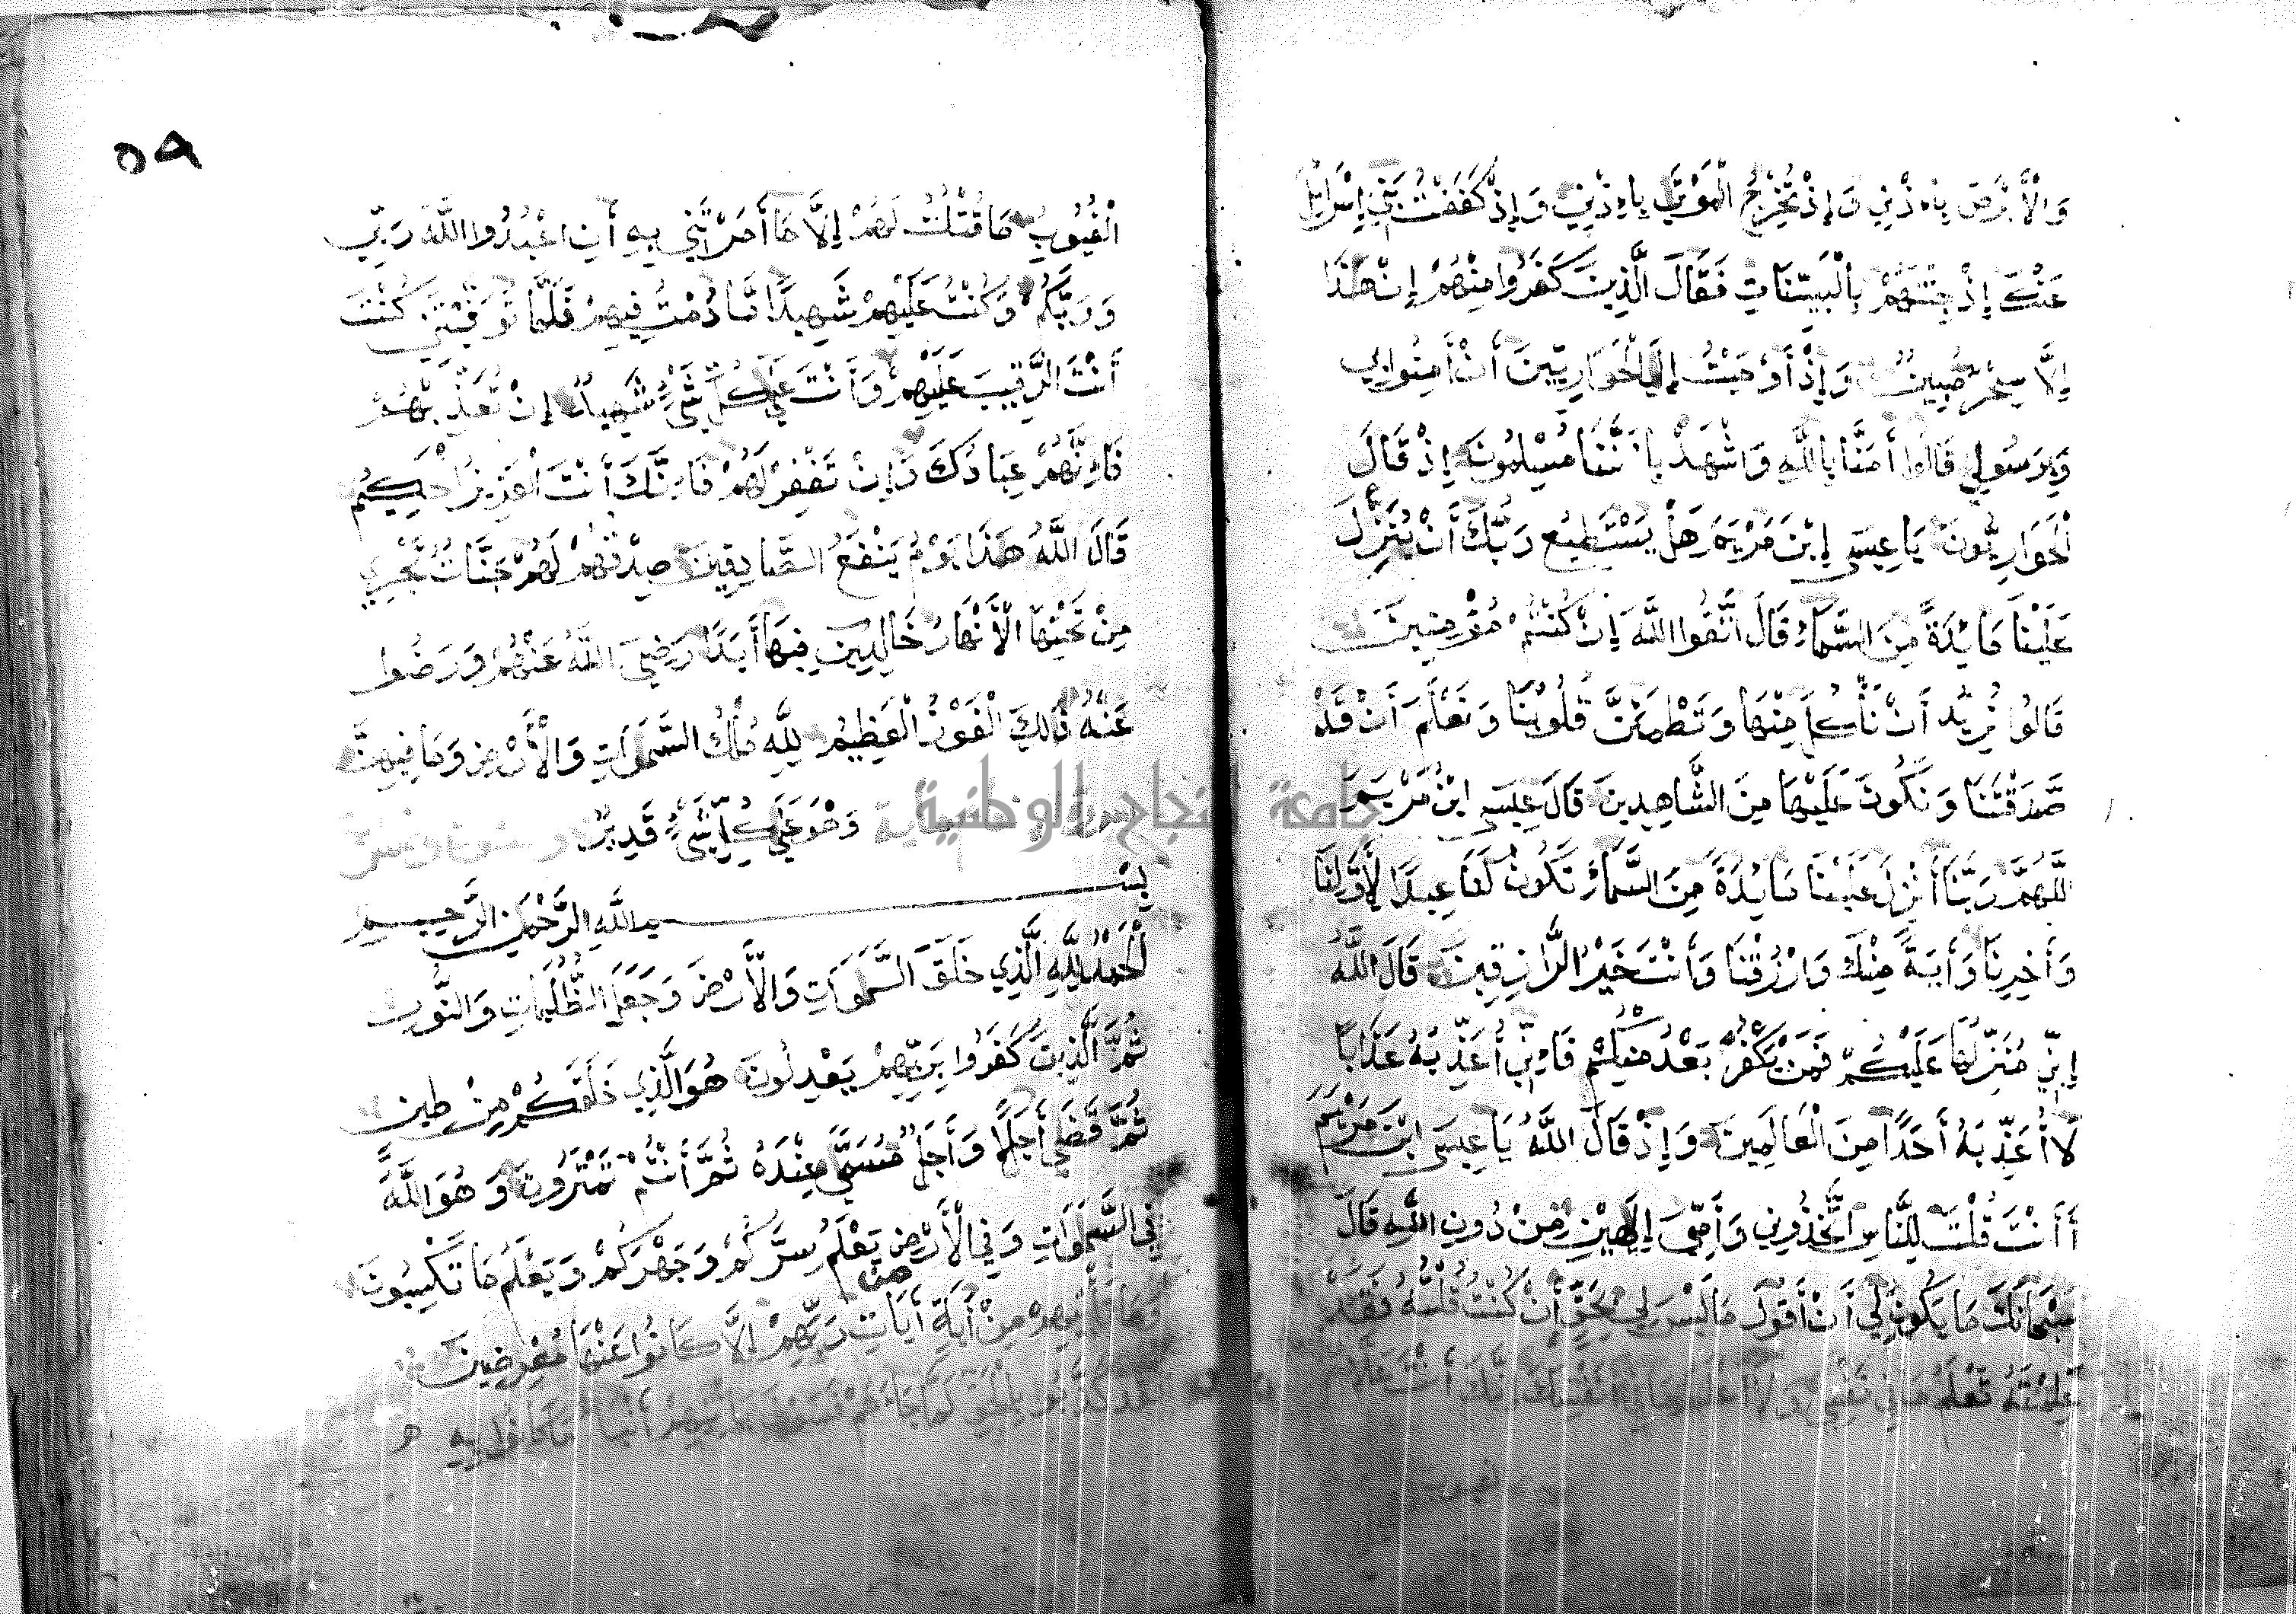 وَالْأَبْرَصَ بِإِذْنِي وَإِذْ تُخْرِجُ الْمَوْتَى بِإِذْنِي وَإِذْ كَفَفْتُ بَنِي إِسْرَائِلَ
عَنْكَ إِذْ جِئْتَهُمْ بِالْبَيِّنَاتِ فَقَالَ الَّذِينَ كَفَرُوا مِنْهُمْ إِنْ هَذَا
إِلَّا سِحْرٌ مُبِينٌ وَإِذْ أَوْحَيْتُ إِلَى الْحَوَارِيِّينَ أَنْ أَمِنُوا بِي
وَبِرَسُولِي قَالُوا أَمَنَّا بِاللَّهِ وَاشْهَدْ بِأَنَّنَا مُسْلِمُونَ إِذْ قَالَ
الْحَوَارِيُّونَ يَا عِيسَى إِبْنَ مَرْيَمَ هَلْ يَسْتَطِيعُ رَبُّكَ أَنْ يُنَزِّلَ
عَلَيْنَا مَايِدَةً مِنَ السَّمَاءِ قَالَ اتَّقُوا اللَّهَ إِنْ كُنْتُمْ مُؤْمِنِينَ
قَالُوا نُرِيدُ أَنْ نَأْكُلَ مِنْهَا وَتَطْمَئِنَّ قُلُوبُنَا وَنَعْلَمَ أَنْ قَدْ
صَدَقْتَنَا وَنَكُونَ عَلَيْهَا مِنَ الشَّاهِدِينَ قَالَ عِيسَى ابْنُ مَرْيَمَ
اللَّهُمَّ رَبَّنَا أَنْزِلْ عَلَيْنَا مَايِدَةً مِنَ السَّمَاءِ تَكُونُ لَنَا عِيدًا لِأَوَّلِنَا
وَأَخِرِنَا وَأَيَةً مِنْكَ وَارْزُقْنَا وَأَنْتَ خَيْرُ الرَّازِقِينَ قَالَ اللَّهُ
إِنِّي مُنَزِّلُهَا عَلَيْكُمْ فَمَنْ يَكْفُرْ بَعْدُ مِنْكُمْ فَإِنِّي أُعَذِّبُهُ عَذَابًا
لَا أُعَذِّبُهُ أَحَدًا مِنَ الْعَالَمِينَ وَإِذْ قَالَ اللَّهُ يَا عِيسَى ابْنَ مَرْيَمَ
أَأَنْتَ قُلْتَ لِلنَّاسِ اتَّخِذُونِي وَأُمِّيَ إِلَهَيْنِ مِنْ دُونِ اللَّهِ قَالَ
سُبْحَانَكَ مَا يَكُونُ لِي أَنْ أَقُولَ مَا لَيْسَ لِي بِحَقٍّ إِنْ كُنْتُ قُلْتُهُ فَقَدْ
عَلِمْتَهُ تَعْلَمُ مَا فِي نَفْسِي وَلَا أَعْلَمُ مَا فِي نَفْسِكَ إِنَّكَ أَنْتَ عَلَّامُ
٥٩
الْغُيُوبِ مَا قُلْتُ لَهُمْ إِلَّا مَا أَمَرْتَنِي بِهِ أَنِ اعْبُدُوا اللَّهَ رَبِّي
وَرَبَّكُمْ وَكُنْتُ عَلَيْهِمْ شَهِيدًا مَا دُمْتُ فِيهِمْ فَلَمَّا تَوَفَّيْتَنِي كُنْتَ
أَنْتَ الرَّقِيبَ عَلَيْهِمْ وَأَنْتَ عَلَى كُلِّ شَيْءٍ شَهِيدٌ إِنْ تُعَذِّبْهُمْ
فَإِنَّهُمْ عِبَادُكَ وَإِنْ تَغْفِرْ لَهُمْ فَإِنَّكَ أَنْتَ الْعَزِيزُ الْحَكِيمُ
قَالَ اللَّهُ هَذَا يَوْمُ يَنْفَعُ الصَّادِقِينَ صِدْقُهُمْ لَهُمْ جَنَّاتٌ تَجْرِي
مِنْ تَحْتِهَا الْأَنْهَارُ خَالِدِينَ فِيهَا أَبَدًا رَضِيَ اللَّهُ عَنْهُمْ وَرَضُوا
عَنْهُ ذَلِكَ الْفَوْزُ الْعَظِيمُ لِلَّهِ مُلْكُ السَّمَوَاتِ وَالْأَرْضِ وَمَا فِيهِنَّ
وَهُوَ عَلَى كُلِّ شَيْءٍ قَدِيرٌ
جامعة النجاح الوطنية
بِسْمِ اللَّهِ الرَّحْمَنِ الرَّحِيمِ
الْحَمْدُ لِلَّهِ الَّذِي خَلَقَ السَّمَوَاتِ وَالْأَرْضَ وَجَعَلَ الظُّلُمَاتِ وَالنُّورَ
ثُمَّ الَّذِينَ كَفَرُوا بِرَبِّهِمْ يَعْدِلُونَ هُوَ الَّذِي خَلَقَكُمْ مِنْ طِينٍ
ثُمَّ قَضَى أَجَلًا وَأَجَلٌ مُسَمًّى عِنْدَهُ ثُمَّ أَنْتُمْ تَمْتَرُونَ وَهُوَ اللَّهُ
فِي السَّمَوَاتِ وَفِي الْأَرْضِ يَعْلَمُ سِرَّكُمْ وَجَهْرَكُمْ وَيَعْلَمُ مَا تَكْسِبُونَ
وَمَا تَأْتِيهِمْ مِنْ أَيَةٍ مِنْ أَيَاتِ رَبِّهِمْ إِلَّا كَانُوا عَنْهَا مُعْرِضِينَ
فَقَدْ كَذَّبُوا بِالْحَقِّ لَمَّا جَاءَهُمْ فَسَوْفَ يَأْتِيهِمْ أَنْبَاءُ مَا كَانُوا بِهِ